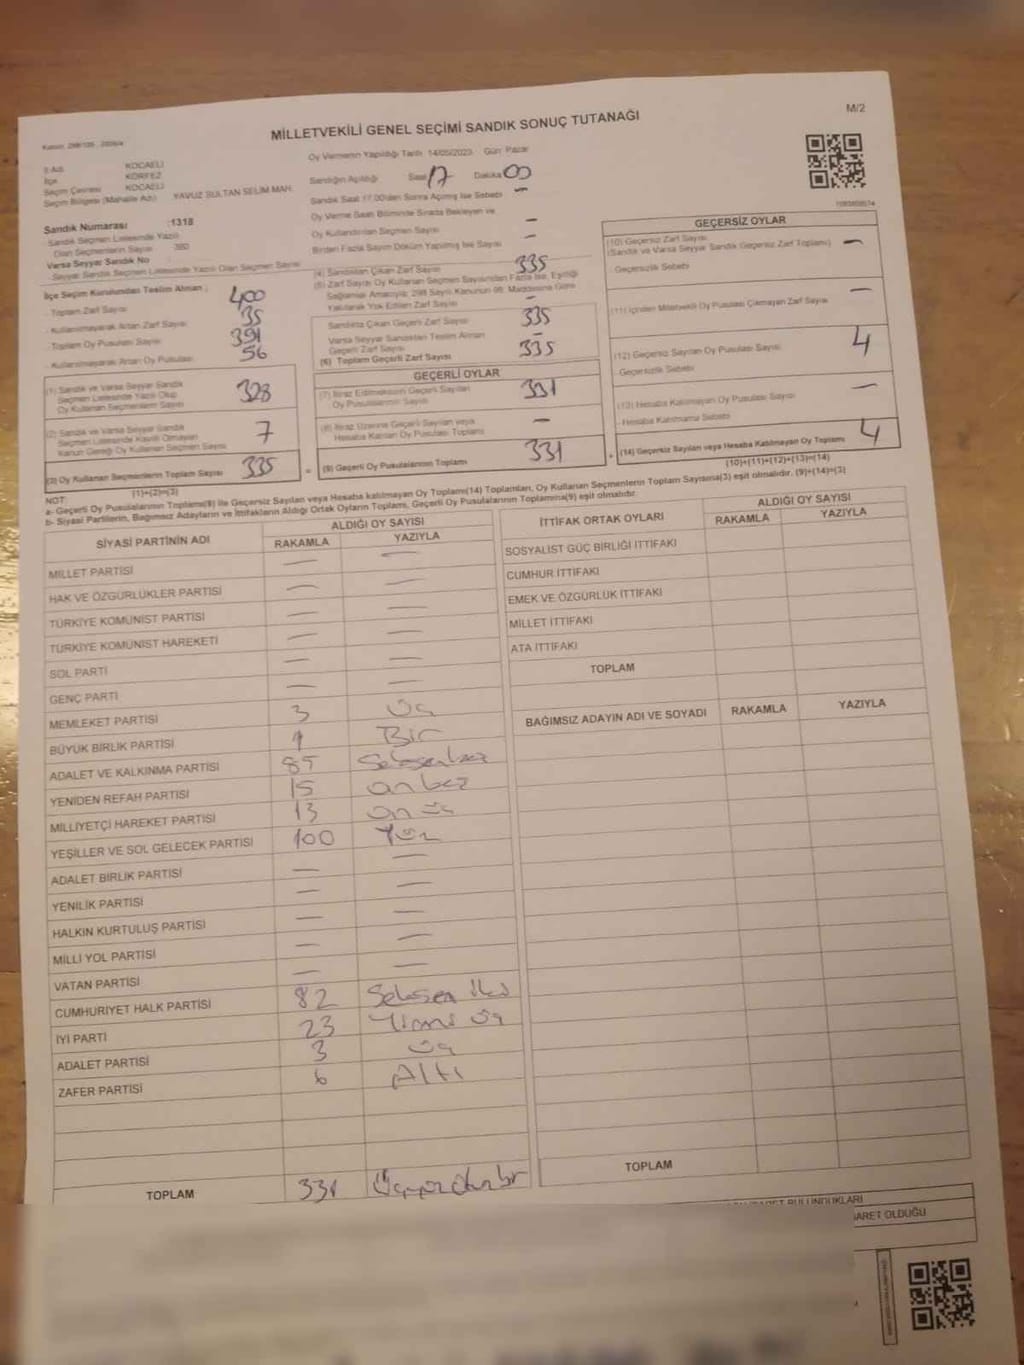 M/2
MİLLETVEKİLİ GENEL SEÇİMİ SANDIK SONUÇ TUTANAĞI
İl Adı : KOCAELİ
İlçe : KÖRFEZ
Seçim Çevresi : KOCAELİ
Seçim Bölgesi (Mahalle Adı) : YAVUZ SULTAN SELİM MAH.
Sandık Numarası :1318
Sandık Seçmen Listesinde Yazılı
Olan Seçmenlerin Sayısı : 380
Varsa Seyyar Sandık No
Seyyar Sandık Seçmen Listesinde Yazılı Olan Seçmen Sayısı
Oy Vermenin Yapıldığı Tarih :14/05/2023 Gün: Pazar
Sandığın Açıldığı Saat 17 Dakika 00
Sandık Saat 17.00'den Sonra Açılmış İse Sebebi —
Oy Verme Saati Bitiminde Sırada Bekleyen ve
Oy Kullandırılan Seçmen Sayısı —
Birden Fazla Sayım Döküm Yapılmış İse Sayısı —
İlçe Seçim Kurulundan Teslim Alınan :
- Toplam Zarf Sayısı 400
- Kullanılmayarak Artan Zarf Sayısı 35
- Toplam Oy Pusulası Sayısı 391
- Kullanılmayarak Artan Oy Pusulası 56
(1) Sandık ve Varsa Seyyar Sandık
Seçmen Listesinde Yazılı Olup
Oy Kullanan Seçmenlerin Sayısı 328
(2) Sandık ve Varsa Seyyar Sandık
Seçmen Listesinde Kayıtlı Olmayan
Kanun Gereği Oy Kullanan Seçmen Sayısı 7
(3) Oy Kullanan Seçmenlerin Toplam Sayısı 335
(1)+(2)=(3)
(4) Sandıktan Çıkan Zarf Sayısı 335
(5) Zarf Sayısı Oy Kullanan Seçmen Sayısından Fazla İse, Eşitliği
Sağlamak Amacıyla, 298 Sayılı Kanunun 98. Maddesine Göre
Yakılarak Yok Edilen Zarf Sayısı —
Sandıkta Çıkan Geçerli Zarf Sayısı 335
Varsa Seyyar Sandıktan Teslim Alınan
Geçerli Zarf Sayısı —
(6) Toplam Geçerli Zarf Sayısı 335
GEÇERLİ OYLAR
(7) İtiraz Edilmeksizin Geçerli Sayılan
Oy Pusulalarının Sayısı 331
(8) İtiraz Üzerine Geçerli Sayılan veya
Hesaba Katılan Oy Pusulası Toplamı —
= (9) Geçerli Oy Pusulalarının Toplamı 331
GEÇERSİZ OYLAR
(10) Geçersiz Zarf Sayısı
(Sandık ve Varsa Seyyar Sandık Geçersiz Zarf Toplamı) —
Geçersizlik Sebebi
(11) İçinden Milletvekili Oy Pusulası Çıkmayan Zarf Sayısı —
(12) Geçersiz Sayılan Oy Pusulası Sayısı 4
Geçersizlik Sebebi
(13) Hesaba Katılmayan Oy Pusulası Sayısı —
Hesaba Katılmama Sebebi
+ (14) Geçersiz Sayılan veya Hesaba Katılmayan Oy Toplamı 4
(10)+(11)+(12)+(13)=(14)
NOT:
a- Geçerli Oy Pusulalarının Toplamı(9) ile Geçersiz Sayılan veya Hesaba katılmayan Oy Toplamı(14) Toplamları, Oy Kullanan Seçmenlerin Toplam Sayısına(3) eşit olmalıdır. (9)+(14)=(3)
b- Siyasi Partilerin, Bağımsız Adayların ve İttifakların Aldığı Ortak Oyların Toplamı, Geçerli Oy Pusulalarının Toplamına(9) eşit olmalıdır.
SİYASİ PARTİNİN ADI ALDIĞI OY SAYISI
RAKAMLA YAZIYLA
MİLLET PARTİSİ — —
HAK VE ÖZGÜRLÜKLER PARTİSİ — —
TÜRKİYE KOMÜNİST PARTİSİ — —
TÜRKİYE KOMÜNİST HAREKETİ — —
SOL PARTİ — —
GENÇ PARTİ — —
MEMLEKET PARTİSİ 3 Üç
BÜYÜK BİRLİK PARTİSİ 1 Bir
ADALET VE KALKINMA PARTİSİ 85 Seksenbeş
YENİDEN REFAH PARTİSİ 15 onbeş
MİLLİYETÇİ HAREKET PARTİSİ 13 on üç
YEŞİLLER VE SOL GELECEK PARTİSİ 100 Yüz
ADALET BİRLİK PARTİSİ — —
YENİLİK PARTİSİ — —
HALKIN KURTULUŞ PARTİSİ — —
MİLLİ YOL PARTİSİ — —
VATAN PARTİSİ — —
CUMHURİYET HALK PARTİSİ 82 Seksen iki
İYİ PARTİ 23 Yirmi üç
ADALET PARTİSİ 3 üç
ZAFER PARTİSİ 6 Altı
TOPLAM 331 Üçyüzotuzbir
İTTİFAK ORTAK OYLARI ALDIĞI OY SAYISI
RAKAMLA YAZIYLA
SOSYALİST GÜÇ BİRLİĞİ İTTİFAKI
CUMHUR İTTİFAKI
EMEK VE ÖZGÜRLÜK İTTİFAKI
MİLLET İTTİFAKI
ATA İTTİFAKI
TOPLAM
BAĞIMSIZ ADAYIN ADI VE SOYADI RAKAMLA YAZIYLA
TOPLAM
BULUNDUKLARI
İBARET OLDUĞU